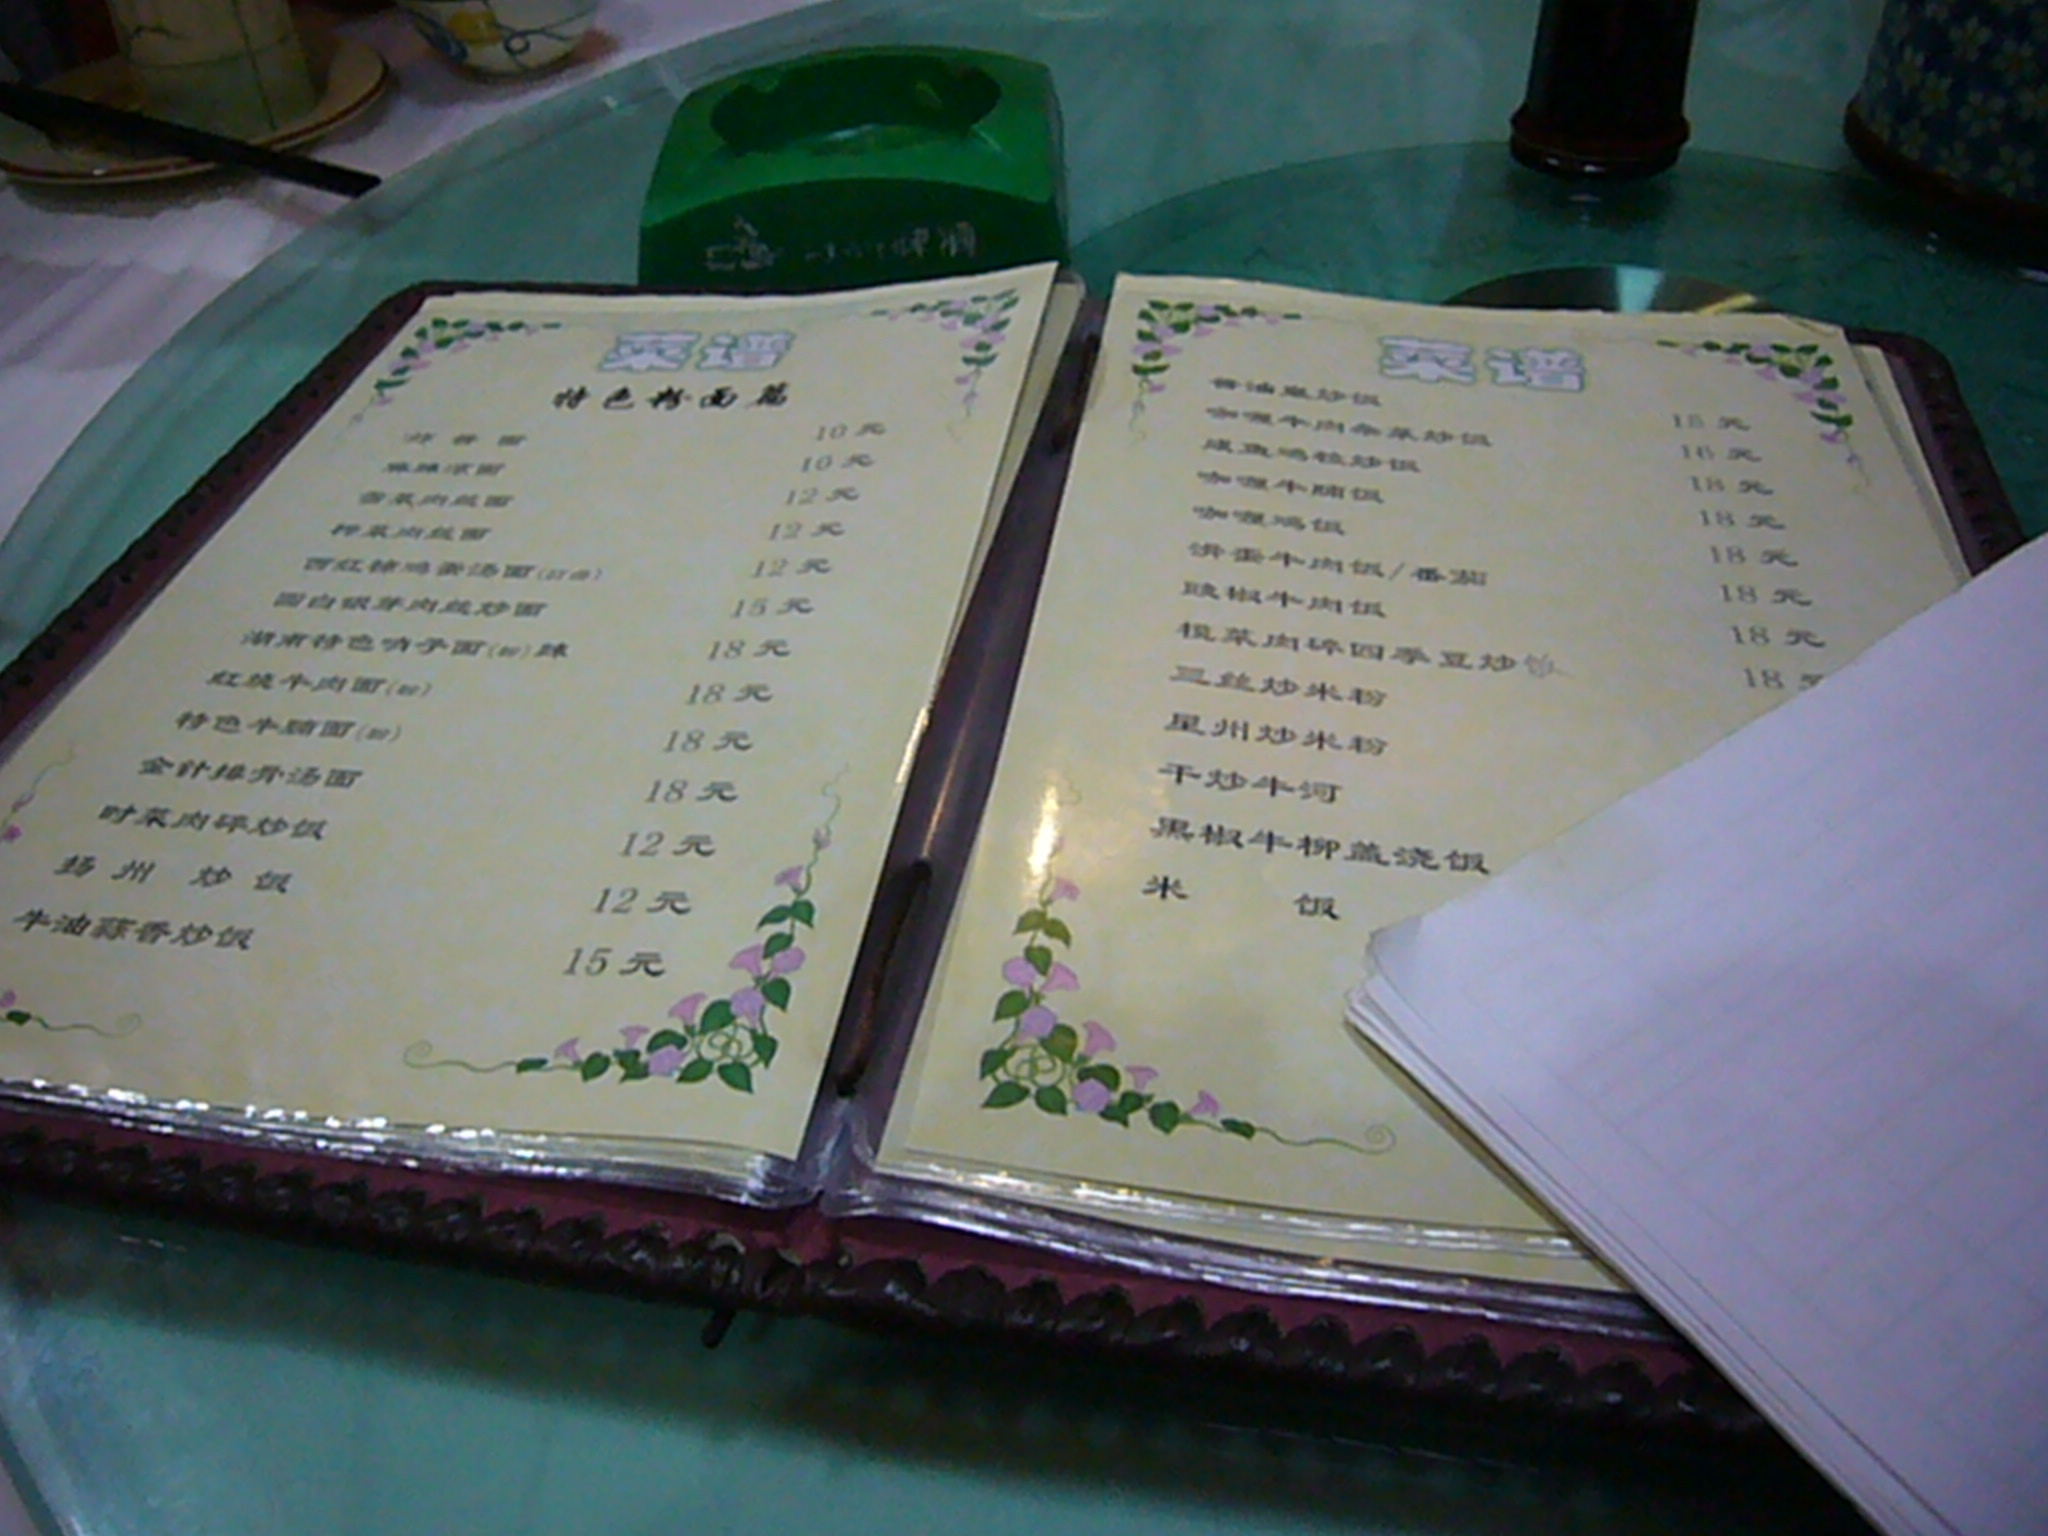 菜谱
特色粉面篇
炸酱面 10元
麻辣凉面 10元
雪菜肉丝面 12元
榨菜肉丝面 12元
西红柿鸡蛋汤面 12元
圆白银芽肉丝炒面 15元
湖南特色哨子面(粉)辣 18元
红烧牛肉面(粉) 18元
特色牛腩面(粉) 18元
金针排骨汤面 18元
时菜肉碎炒饭 12元
扬州 炒饭 12元
牛油蒜香炒饭 15元
菜谱
酱油 炒饭 15元
咖喱牛肉杂菜炒饭 16元
咸鱼鸡粒炒饭 18元
咖喱牛腩饭 18元
咖喱鸡饭 18元
滑蛋牛肉饭/番茄 18元
豉椒牛肉饭 18元
榄菜肉碎四季豆炒饭 18元
三丝炒米粉
星州炒米粉
干炒牛河
黑椒牛柳盖浇饭
米 饭